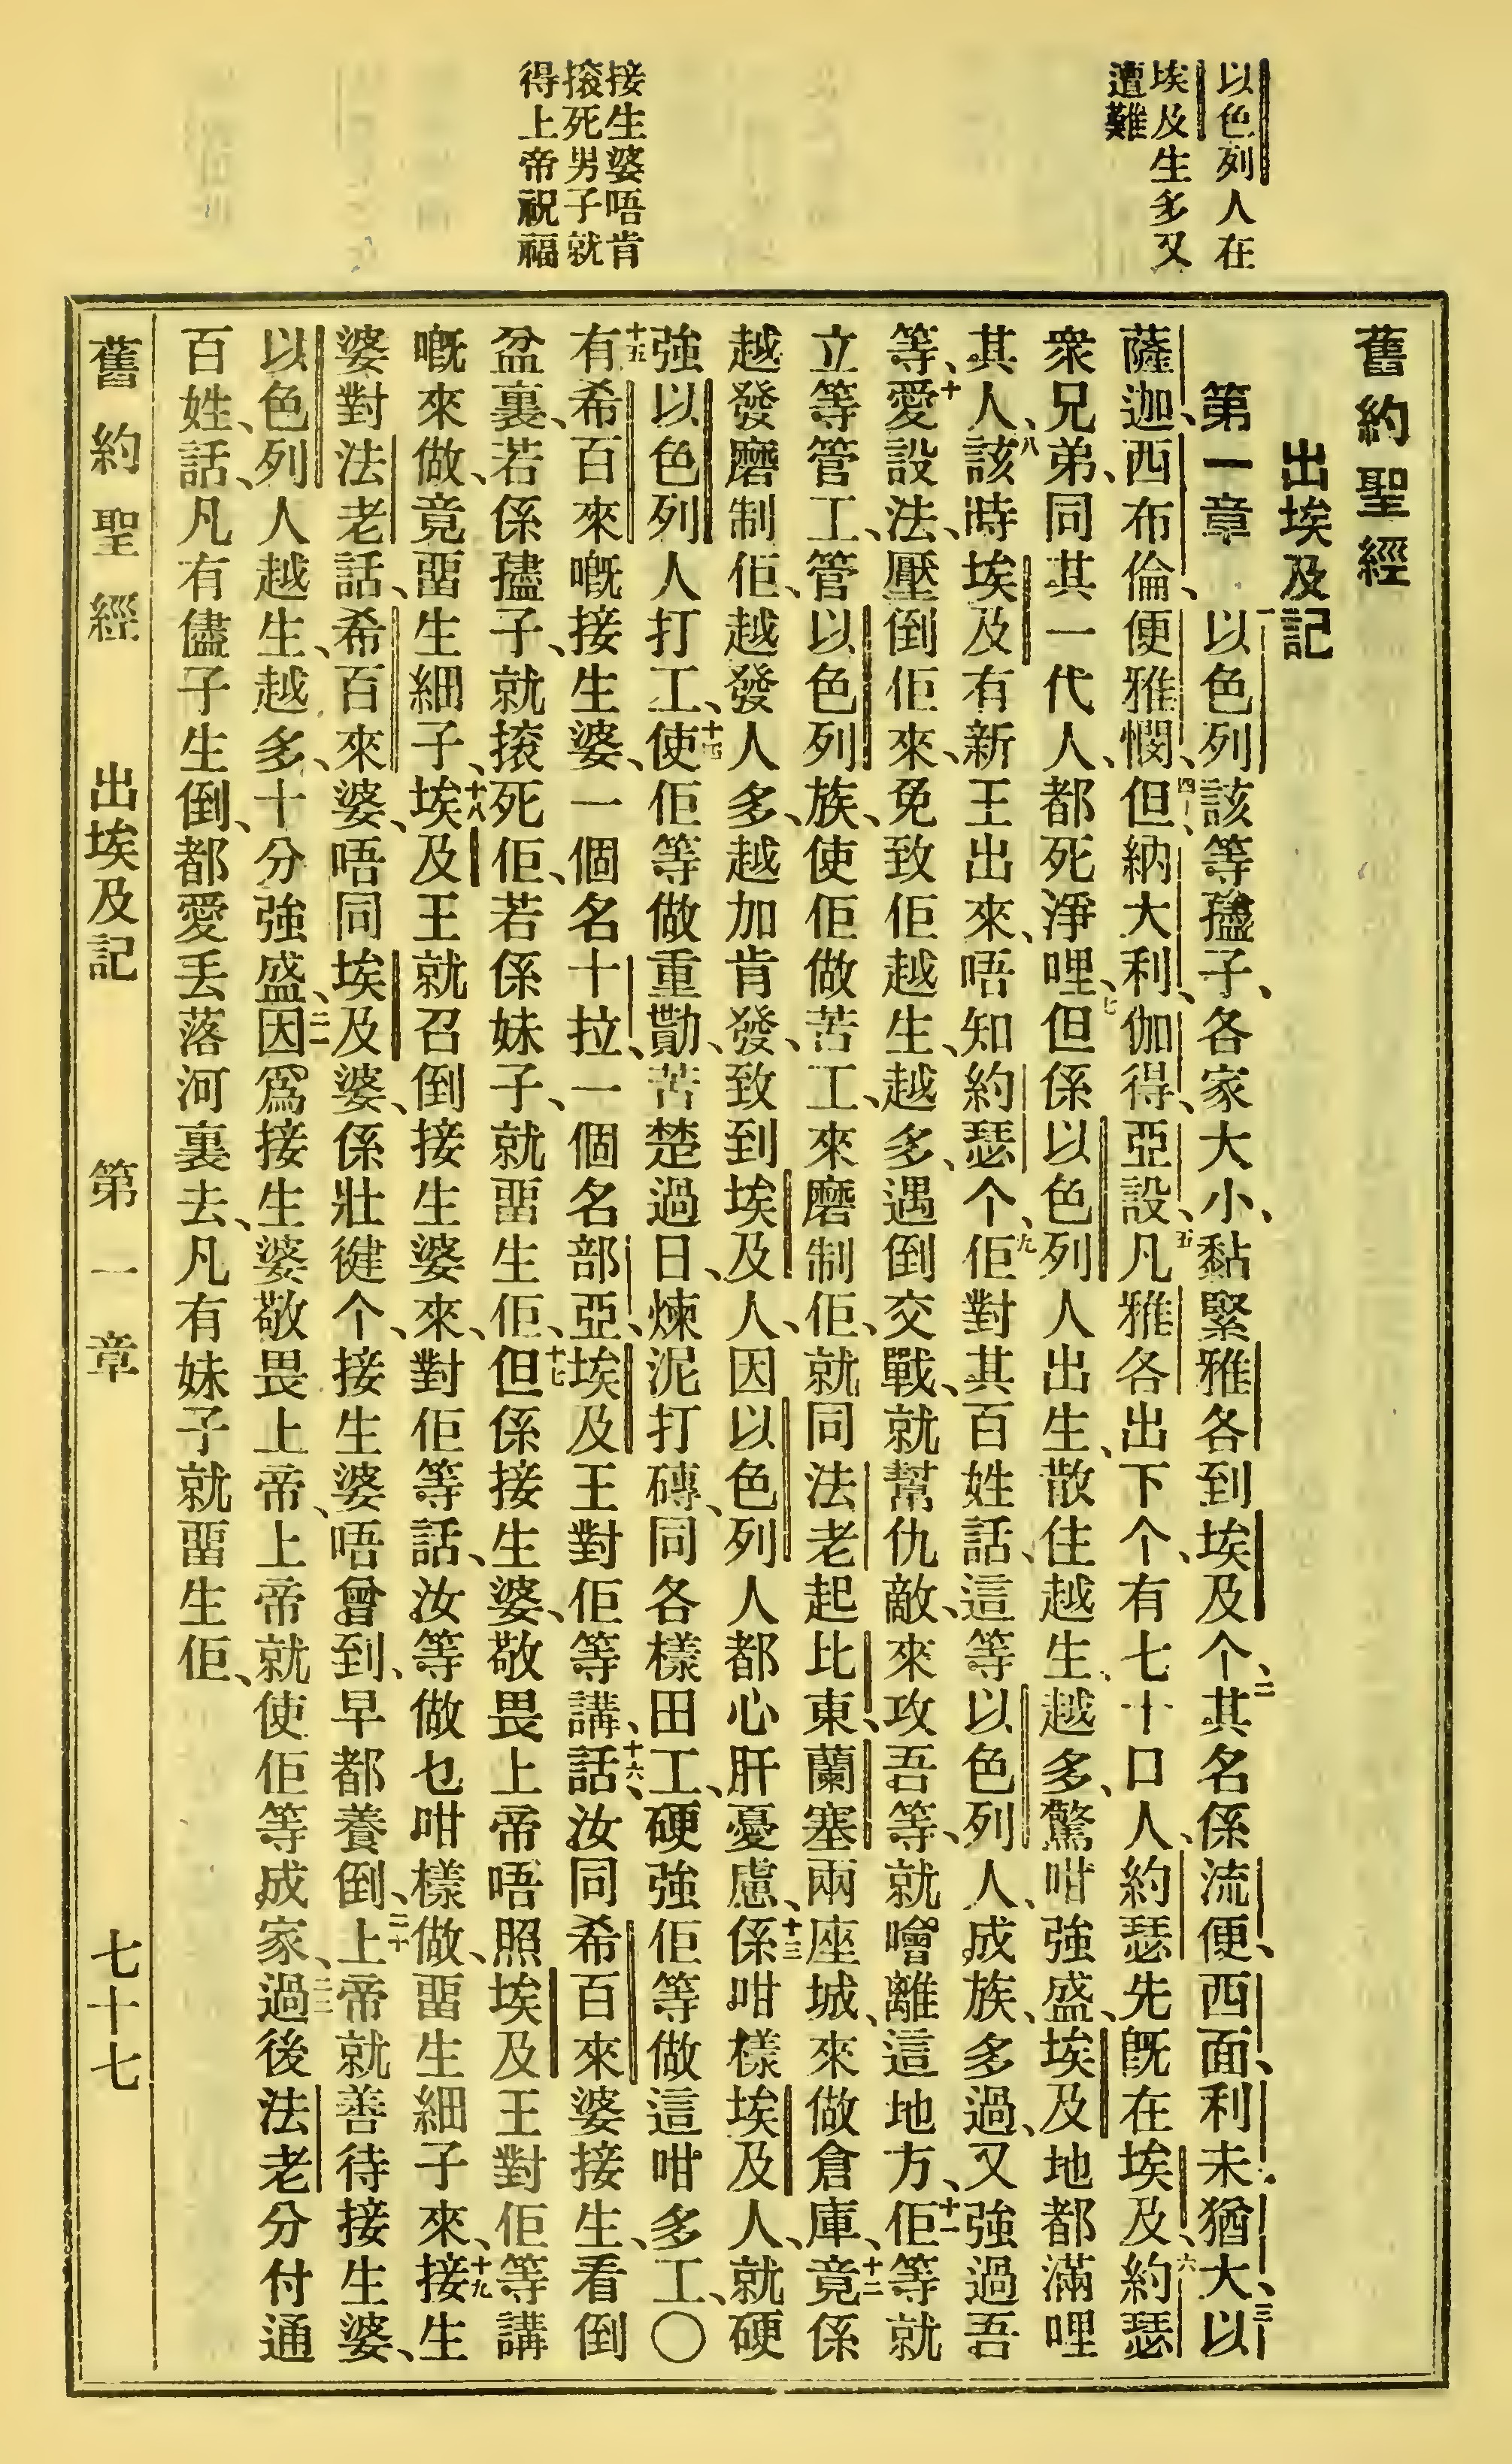 以色列人在
埃及生多又
遭難
接生婆唔肯
㨰死男子就
得上帝祝福
舊約聖經
出埃及記
第一章 以色列該等孻子、各家大小、黏緊雅各到埃及个、二其名係流便、西面、利未、猶大、三以
薩迦、西布倫、便雅憫、四但、納大利、伽得、亞設、五凡雅各出下个、有七十口人、約瑟先旣在埃及、六約瑟
衆兄弟、同其一代人、都死淨哩、七但係以色列人出生、散住越生、越多、驚咁強盛、埃及地都滿哩
其人、八該時埃及有新王出來、唔知約瑟个、九佢對其百姓話、這等以色列人、成族、多過、又強過吾
等、十愛設法、壓倒佢來、免致佢越生、越多、遇倒交戰、就幫仇敵、來攻吾等、就噲離這地方、十一佢等就
立等管工、管以色列族、使佢做苦工、來磨制佢、就同法老起比東、蘭塞兩座城、來做倉庫、十二竟係
越發磨制佢、越發人多、越加肯發、致到埃及人、因以色列人都心肝憂慮、十三係咁樣埃及人、就硬
強以色列人打工、十四使佢等做重勩、苦楚過日、煉泥打磚、同各樣田工、硬強佢等做這咁多工、〇
十五有希百來嘅接生婆、一個名十拉、一個名部亞、埃及王對佢等講、十六話、汝同希百來婆接生、看倒
盆裏、若係孻子、就㨰死佢、若係妹子、就畱生佢、十七但係接生婆、敬畏上帝唔照埃及王對佢等講
嘅來做、竟畱生細子、十八埃及王就召倒接生婆來、對佢等話、汝等做乜咁樣做、畱生細子來、十九接生
婆對法老話、希百來婆、唔同埃及婆、係壯徤个、接生婆唔曾到、早都養倒、二十上帝就善待接生婆、
以色列人越生、越多、十分強盛、二一因爲接生婆敬畏上帝、上帝就使佢等成家、二二過後法老分付通
百姓、話、凡有儘子生倒、都愛丢落河裏去、凡有妹子就畱生佢、
舊約聖經 出埃及記 第一章 七十七